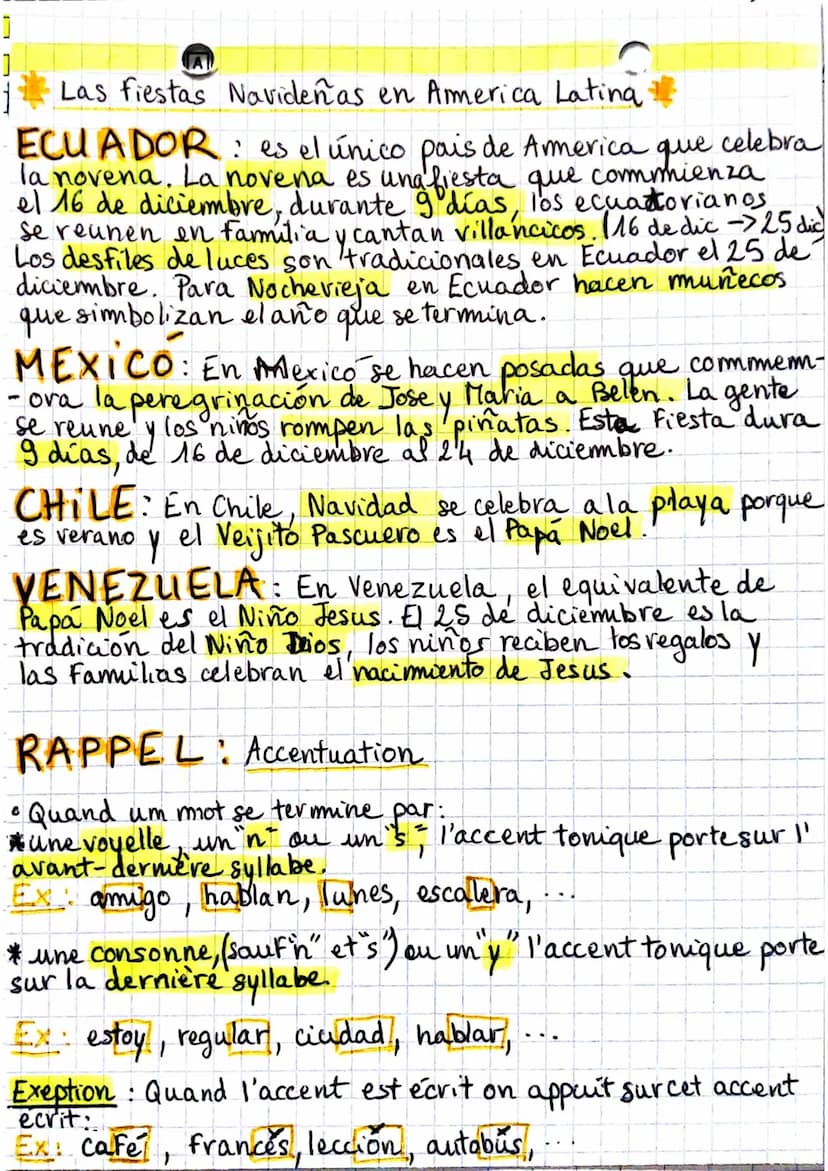 Las fiestas Navideñas en America Latina
ECUADOR : es el único pais de America que celebra
la novena. La novena es una fiesta que commienza
el 16 de diciembre, durante 9 días, los ecuatorianos
se reunen en familia y cantan villancicos. (16 de dic → 25 dic)
Los desfiles de luces son tradicionales en Ecuador el 25 de
diciembre. Para Nochevieja en Ecuador hacen muñecos
que simbolizan el año que se termina.
MEXICÓ : En Mexico se hacen posadas que commem-
-ora la peregrinación de Jose y Maria a Belen. La gente
se reune y los niños rompen las piñatas. Esta fiesta dura
9 días, de 16 de diciembre al 24 de diciembre.
CHILE : En Chile, Navidad se celebra a la playa porque
es verano y el Veijito Pascuero es el Papá Noel.
VENEZUELA : En Venezuela, el equivalente de
Papá Noel es el Niño Jesus. El 25 de diciembre es la
tradición del Niño Dios, los niños reciben los regalos y
las familias celebran el nacimiento de Jesus.
RAPPEL : Accentuation
• Quand um mot se termine par:
* une voyelle, un "n" ou un "s", l'accent tonique porte sur l'
avant-dernière syllabe.
Ex : amigo, hablan, lunes, escalera, ...
* une consonne, (sauf "n" et "s") ou un "y" l'accent tonique porte
sur la dernière syllabe.
Ex : estoy, regular, ciudad, hablar, ...
Exeption : Quand l'accent est écrit on appuit sur cet accent
écrit:
Ex : café, francés, lección, autobús, ...